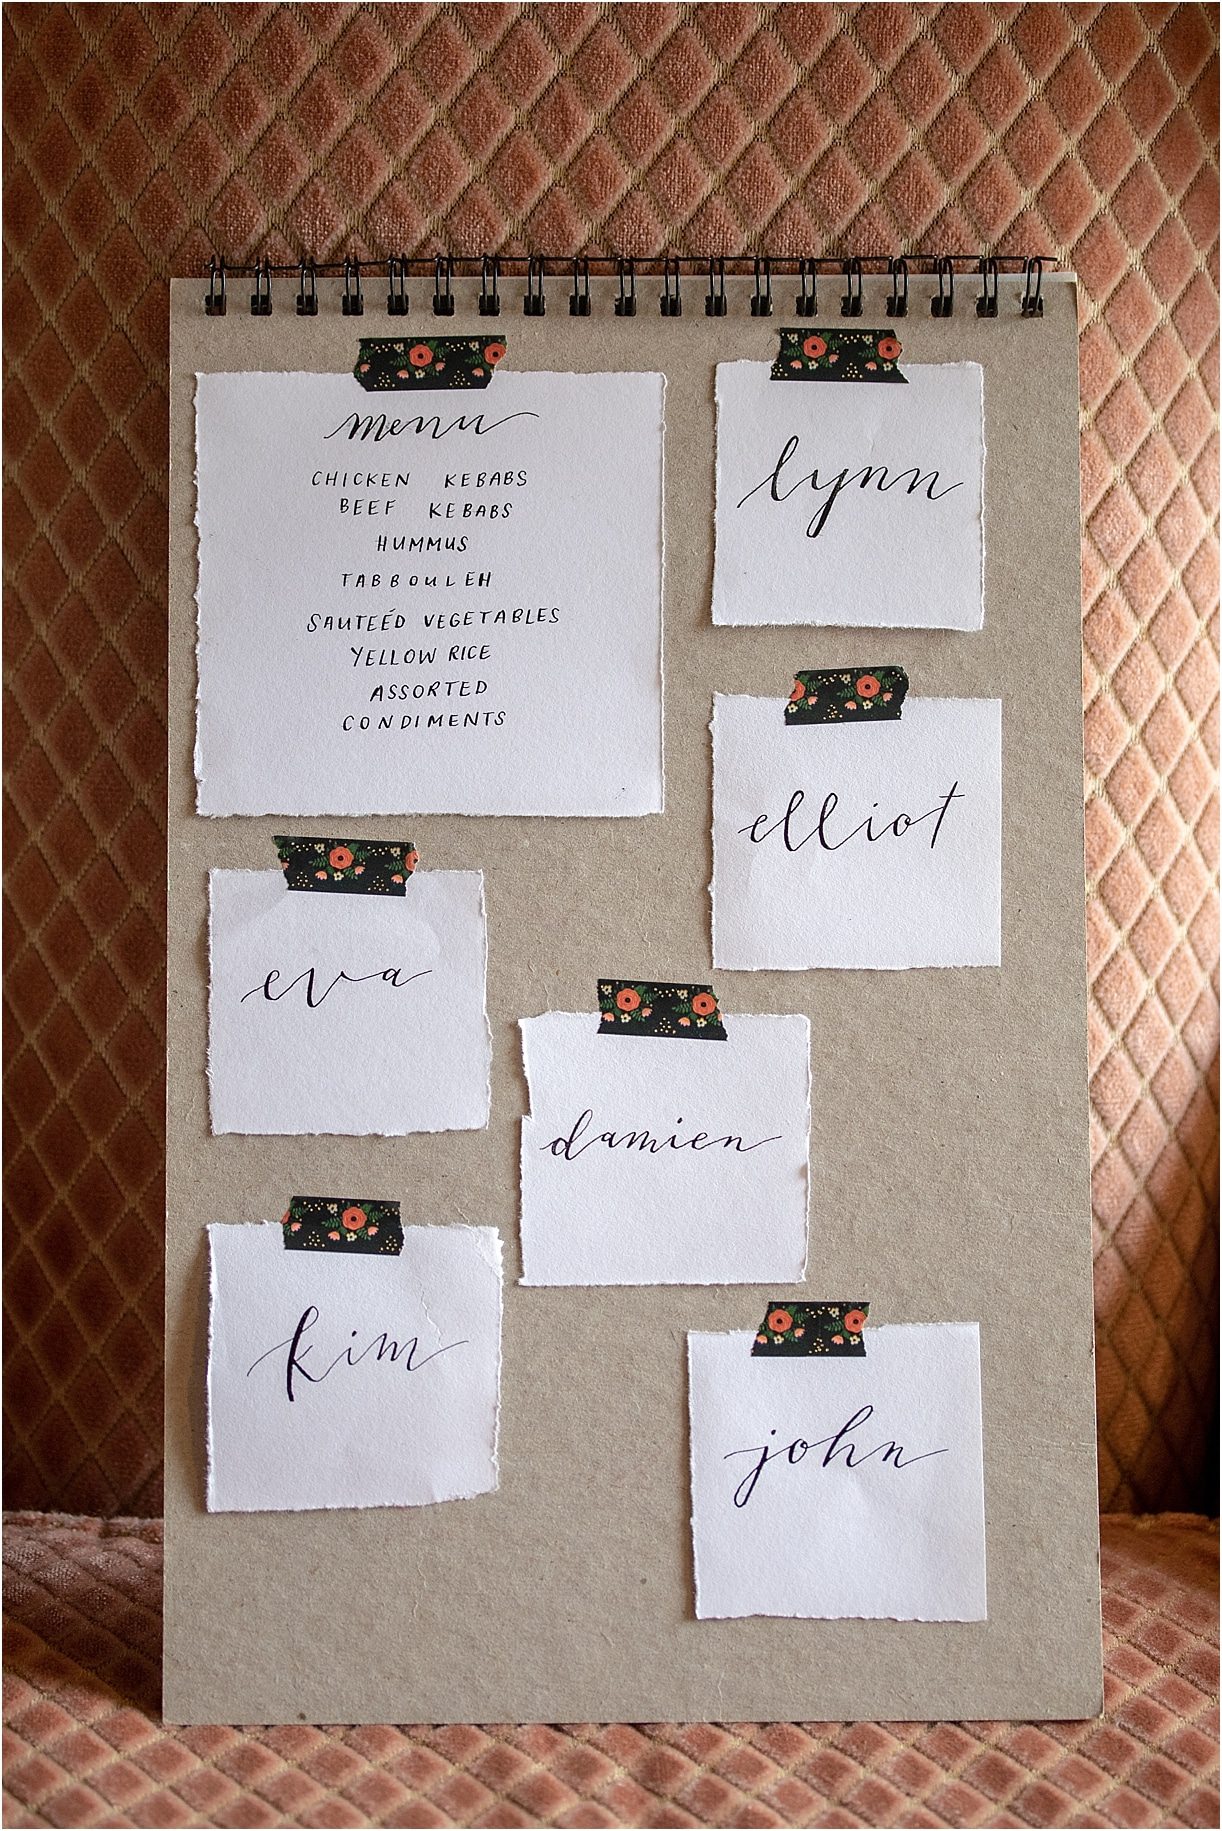 menu
CHICKEN KEBABS
BEEF KEBABS
HUMMUS
TABBOULEH
SAUTEÉD VEGETABLES
YELLOW RICE
ASSORTED
CONDIMENTS
lynn
elliot
eva
damien
kim
john